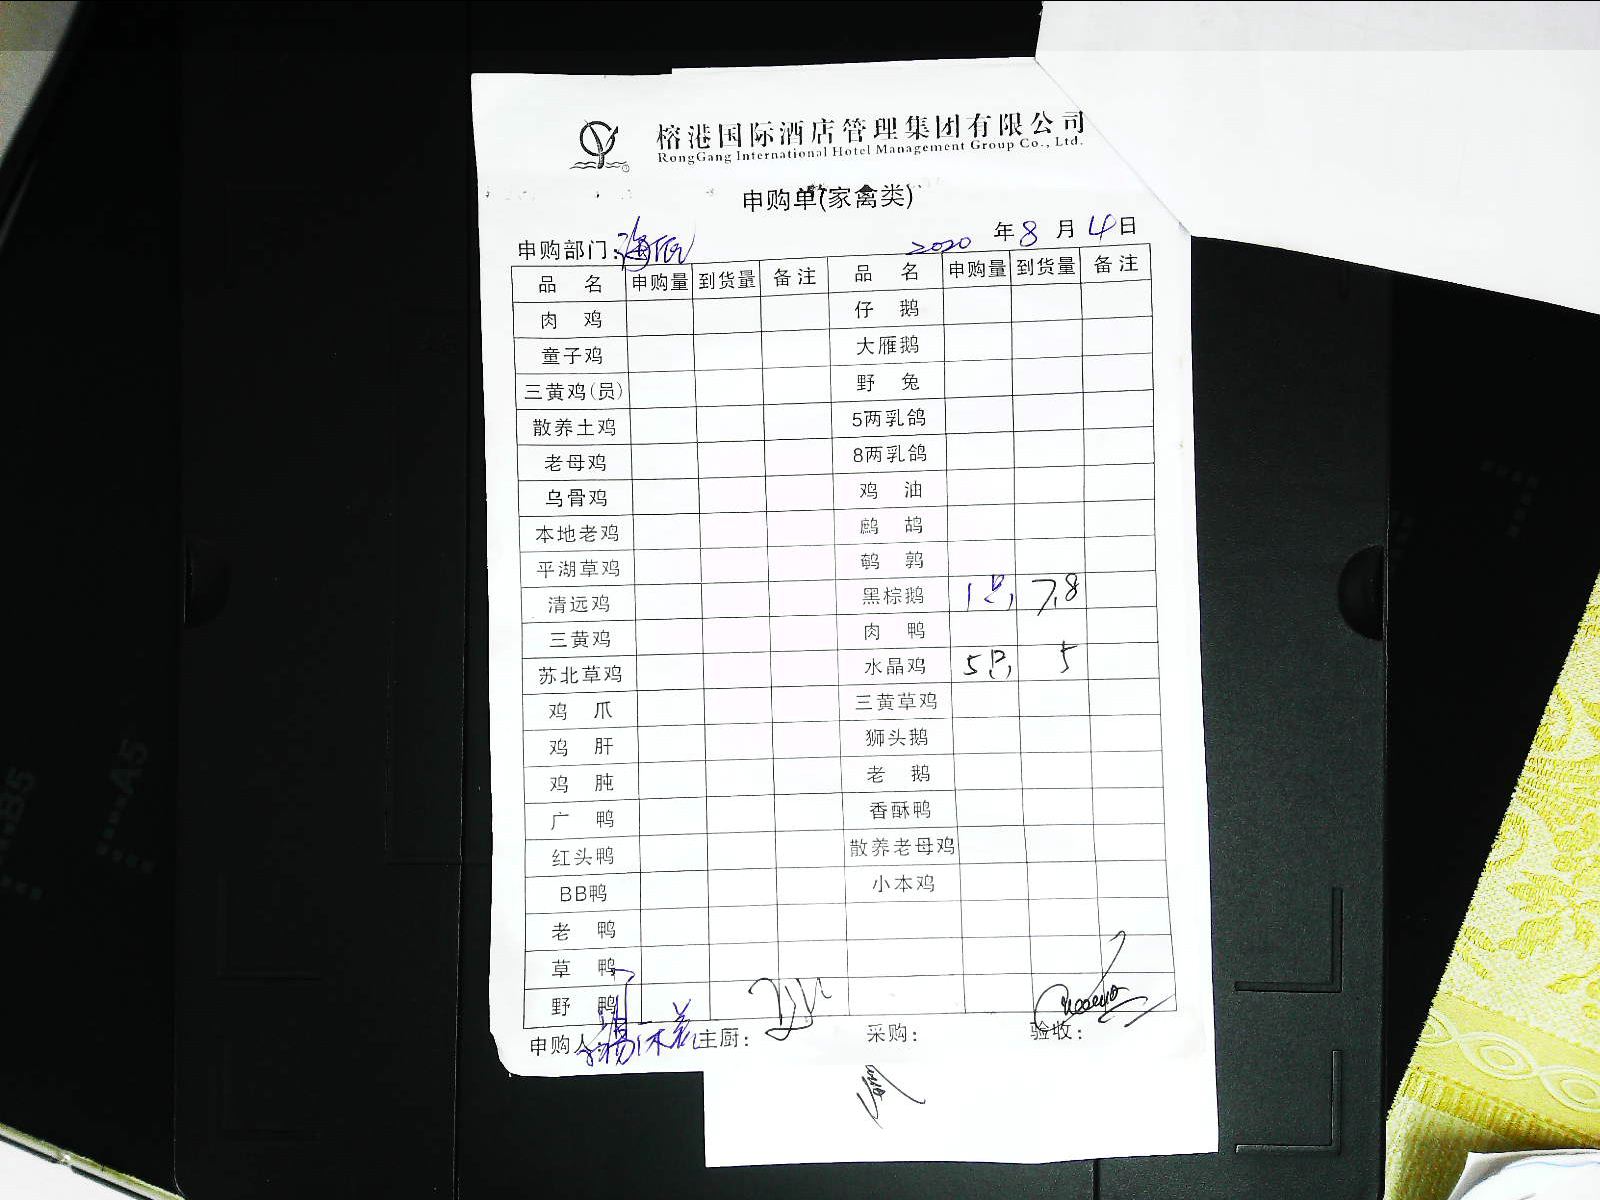 榕港国际酒店管理集团有限公司
RongGang International Hotel Management Group Co., Ltd.
申购单(家禽类)
申购部门: 2020 年 8 月 4 日
品 名 申购量 到货量 备注 品 名 申购量 到货量 备注
肉 鸡 仔 鹅
童子鸡 大雁鹅
三黄鸡(员) 野 兔
散养土鸡 5两乳鸽
老母鸡 8两乳鸽
乌骨鸡 鸡 油
本地老鸡 鹧 鸪
平湖草鸡 鹌 鹑
清远鸡 黑棕鹅 1只 7.8
三黄鸡 肉 鸭
苏北草鸡 水晶鸡 5只 5
鸡 爪 三黄草鸡
鸡 肝 狮头鹅
鸡 肫 老 鹅
广 鸭 香酥鸭
红头鸭 散养老母鸡
BB鸭 小本鸡
老 鸭
草 鸭
野 鸭
申购人: 主厨: 采购: 验收:
B5
A5